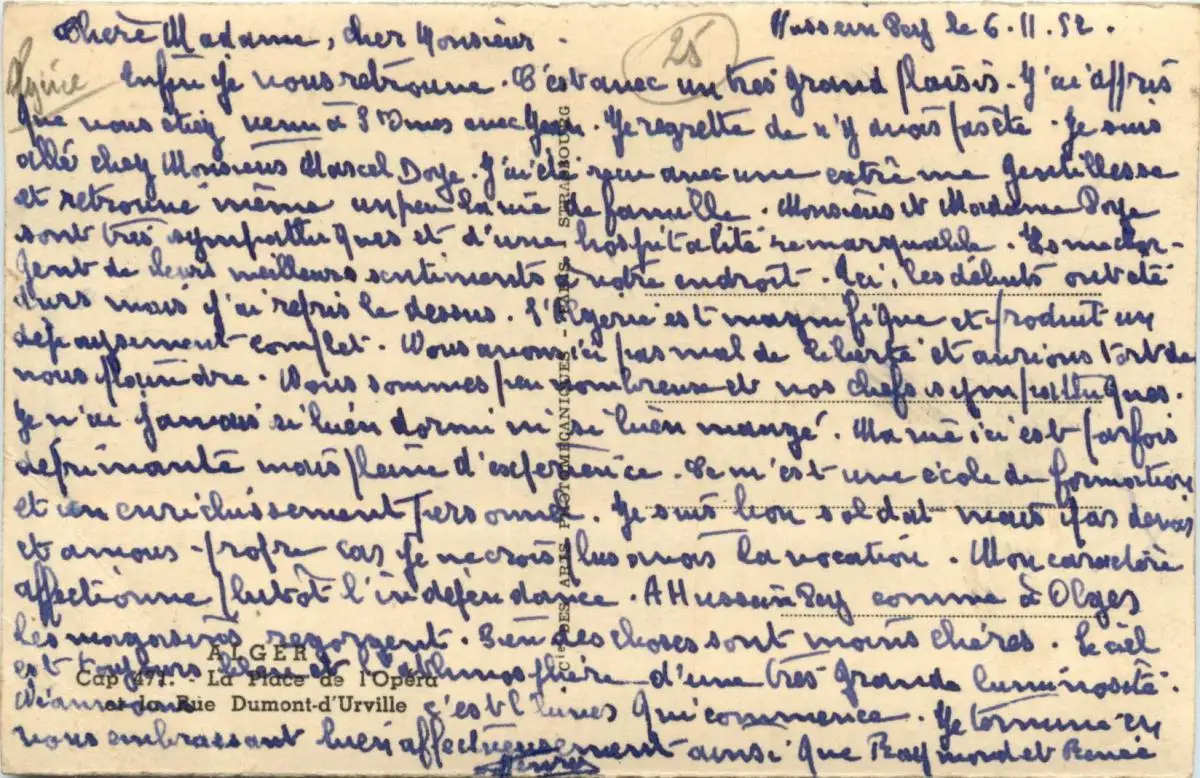 Hussein Dey le 6.11.52.
Chère Madame, cher Monsieur -
25
Algérie
Enfin je vous retrouve. C'est avec un très grand plaisir. J'ai appris
que vous étiez venu à avec Jean. Je regrette de n'y avoir pas été. Je suis
allé chez Monsieur Marcel Doye. J'ai été reçu avec une extrême gentillesse
et retrouvé même un peu la vie de famille. Monsieur et Madame Doye
sont très sympathiques et d'une hospitalité remarquable. Ils me char-
gent de leurs meilleurs sentiments à votre endroit. Ici, les débuts ont été
durs mais j'ai repris le dessus. L'Algérie est magnifique et produit un
dépaysement complet. Nous avons ici pas mal de liberté et aurions tort de
nous plaindre. Nous sommes peu nombreux et nos chefs sympathiques.
Je n'ai jamais si bien dormi ni si bien mangé. Ma vie ici est parfois
déprimante mais pleine d'expérience. Ce m'est une école de formation
et un enrichissement personnel. Je suis bon soldat mais par devoir
et amour-propre car je ne crois plus avoir la vocation. Mon caractère
affectionne plutôt l'indépendance. A Hussein Dey comme à Alger
les magasins regorgent. Bien des choses sont moins chères. Le ciel
est toujours bleu et l'athmosphère d'une très grande luminosité.
Néanmoins c'est l'hiver qui commence. Je termine en
vous embrassant bien affectueusement ainsi que Raymond et Renée
Henri
ALGER
Cap 477. - La Place de l'Opéra
et la Rue Dumont-d'Urville
Cie DES ARTS PHOTOMECANIQUES - PARIS - STRASBOURG